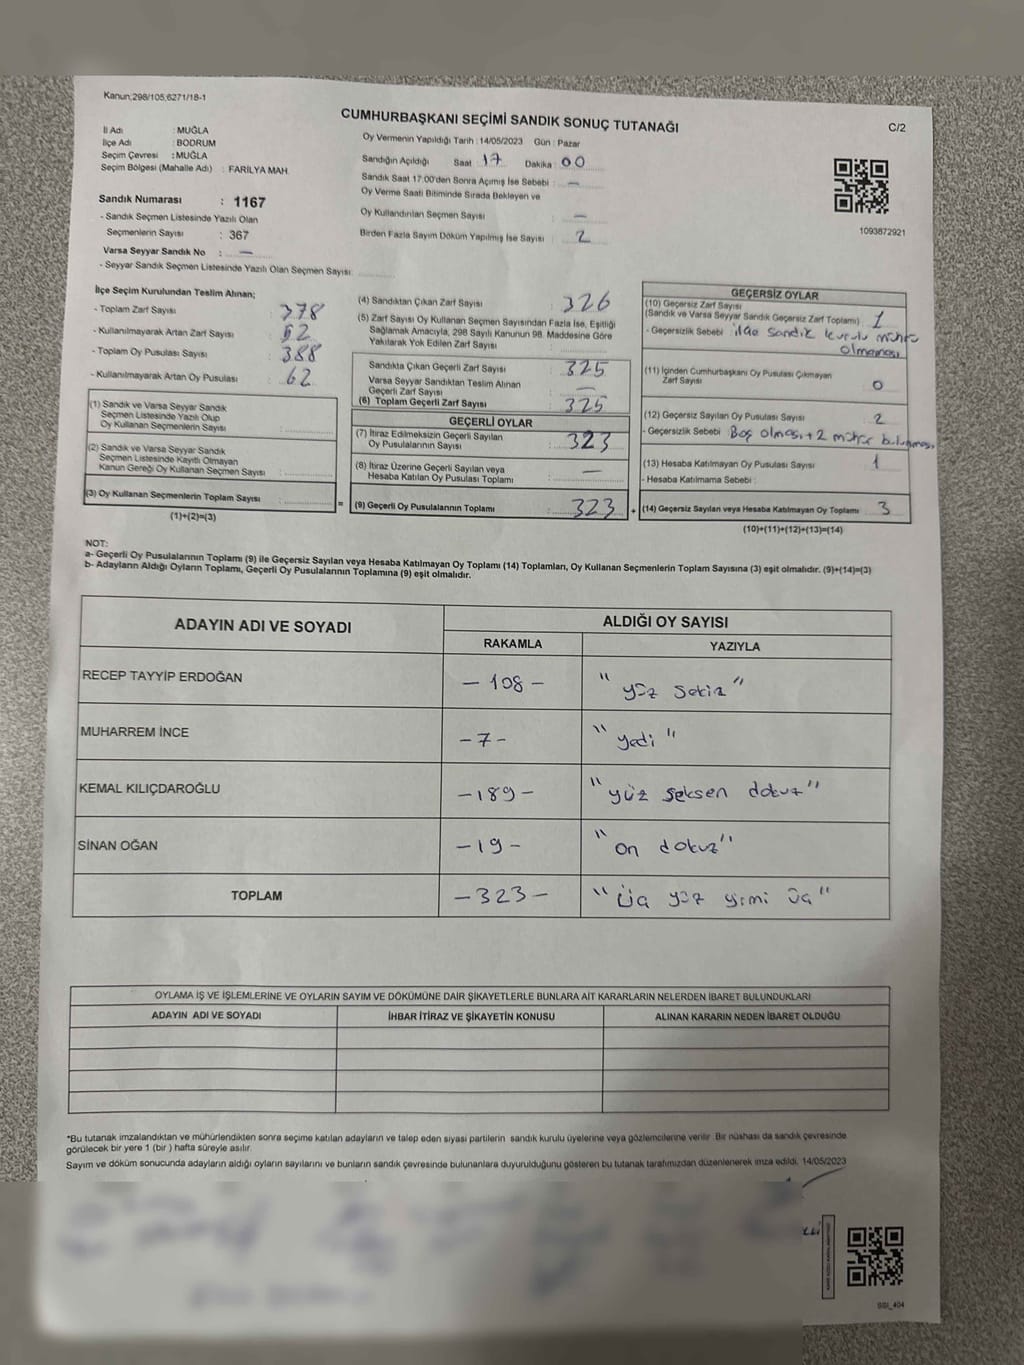 Kanun;298/105;6271/18-1
CUMHURBAŞKANI SEÇİMİ SANDIK SONUÇ TUTANAĞI
C/2
İl Adı : MUĞLA
İlçe Adı : BODRUM
Seçim Çevresi : MUĞLA
Seçim Bölgesi (Mahalle Adı) : FARİLYA MAH.
Sandık Numarası : 1167
- Sandık Seçmen Listesinde Yazılı Olan
Seçmenlerin Sayısı : 367
Varsa Seyyar Sandık No : —
- Seyyar Sandık Seçmen Listesinde Yazılı Olan Seçmen Sayısı:
Oy Vermenin Yapıldığı Tarih : 14/05/2023 Gün : Pazar
Sandığın Açıldığı Saat : 17 Dakika : 00
Sandık Saat 17.00'den Sonra Açımış İse Sebebi : —
Oy Verme Saati Bitiminde Sırada Bekleyen ve
Oy Kullandırılan Seçmen Sayısı : —
Birden Fazla Sayım Döküm Yapılmış İse Sayısı : 2
1093872921
İlçe Seçim Kurulundan Teslim Alınan;
- Toplam Zarf Sayısı : 378
- Kullanılmayarak Artan Zarf Sayısı : 52
- Toplam Oy Pusulası Sayısı : 388
- Kullanılmayarak Artan Oy Pusulası : 62
(1) Sandık ve Varsa Seyyar Sandık
Seçmen Listesinde Yazılı Olup
Oy Kullanan Seçmenlerin Sayısı :
(2) Sandık ve Varsa Seyyar Sandık
Seçmen Listesinde Kayıtlı Olmayan
Kanun Gereği Oy Kullanan Seçmen Sayısı :
(3) Oy Kullanan Seçmenlerin Toplam Sayısı :
(1)+(2)=(3)
(4) Sandıktan Çıkan Zarf Sayısı : 326
(5) Zarf Sayısı Oy Kullanan Seçmen Sayısından Fazla İse, Eşitliği
Sağlamak Amacıyla, 298 Sayılı Kanunun 98. Maddesine Göre
Yakılarak Yok Edilen Zarf Sayısı :
Sandıkta Çıkan Geçerli Zarf Sayısı : 325
Varsa Seyyar Sandıktan Teslim Alınan
Geçerli Zarf Sayısı : —
(6) Toplam Geçerli Zarf Sayısı : 325
GEÇERLİ OYLAR
(7) İtiraz Edilmeksizin Geçerli Sayılan
Oy Pusulasının Sayısı : 323
(8) İtiraz Üzerine Geçerli Sayılan veya
Hesaba Katılan Oy Pusulası Toplamı : —
= (9) Geçerli Oy Pusulalarının Toplamı : 323 +
GEÇERSİZ OYLAR
(10) Geçersiz Zarf Sayısı
(Sandık ve Varsa Seyyar Sandık Geçersiz Zarf Toplamı) : 1
- Geçersizlik Sebebi : ilçe sandık kurulu mührü
olmaması
(11) İçinden Cumhurbaşkanı Oy Pusulası Çıkmayan
Zarf Sayısı : 0
(12) Geçersiz Sayılan Oy Pusulası Sayısı : 2
- Geçersizlik Sebebi : Boş olması + 2 mühür bulunması
(13) Hesaba Katılmayan Oy Pusulası Sayısı : 1
- Hesaba Katılmama Sebebi :
(14) Geçersiz Sayılan veya Hesaba Katılmayan Oy Toplamı : 3
(10)+(11)+(12)+(13)=(14)
NOT:
a- Geçerli Oy Pusulalarının Toplamı (9) ile Geçersiz Sayılan veya Hesaba Katılmayan Oy Toplamı (14) Toplamları, Oy Kullanan Seçmenlerin Toplam Sayısına (3) eşit olmalıdır. (9)+(14)=(3)
b- Adayların Aldığı Oyların Toplamı, Geçerli Oy Pusulalarının Toplamına (9) eşit olmalıdır.
ADAYIN ADI VE SOYADI
ALDIĞI OY SAYISI
RAKAMLA YAZIYLA
RECEP TAYYİP ERDOĞAN - 108 - "yüz sekiz"
MUHARREM İNCE - 7 - "yedi"
KEMAL KILIÇDAROĞLU - 189 - "yüz seksen dokuz"
SİNAN OĞAN - 19 - "on dokuz"
TOPLAM - 323 - "Üç yüz yirmi üç"
OYLAMA İŞ VE İŞLEMLERİNE VE OYLARIN SAYIM VE DÖKÜMÜNE DAİR ŞİKAYETLERLE BUNLARA AİT KARARLARIN NELERDEN İBARET BULUNDUKLARI
ADAYIN ADI VE SOYADI İHBAR İTİRAZ VE ŞİKAYETİN KONUSU ALINAN KARARIN NEDEN İBARET OLDUĞU
*Bu tutanak imzalandıktan ve mühürlendikten sonra seçime katılan adayların ve talep eden siyasi partilerin sandık kurulu üyelerine veya gözlemcilerine verilir. Bir nüshası da sandık çevresinde
görülecek bir yere 1 (bir) hafta süreyle asılır.
Sayım ve döküm sonucunda adayların aldığı oyların sayılarını ve bunların sandık çevresinde bulunanlara duyurulduğunu gösteren bu tutanak tarafımızdan düzenlenerek imza edildi. 14/05/2023
SSI_404